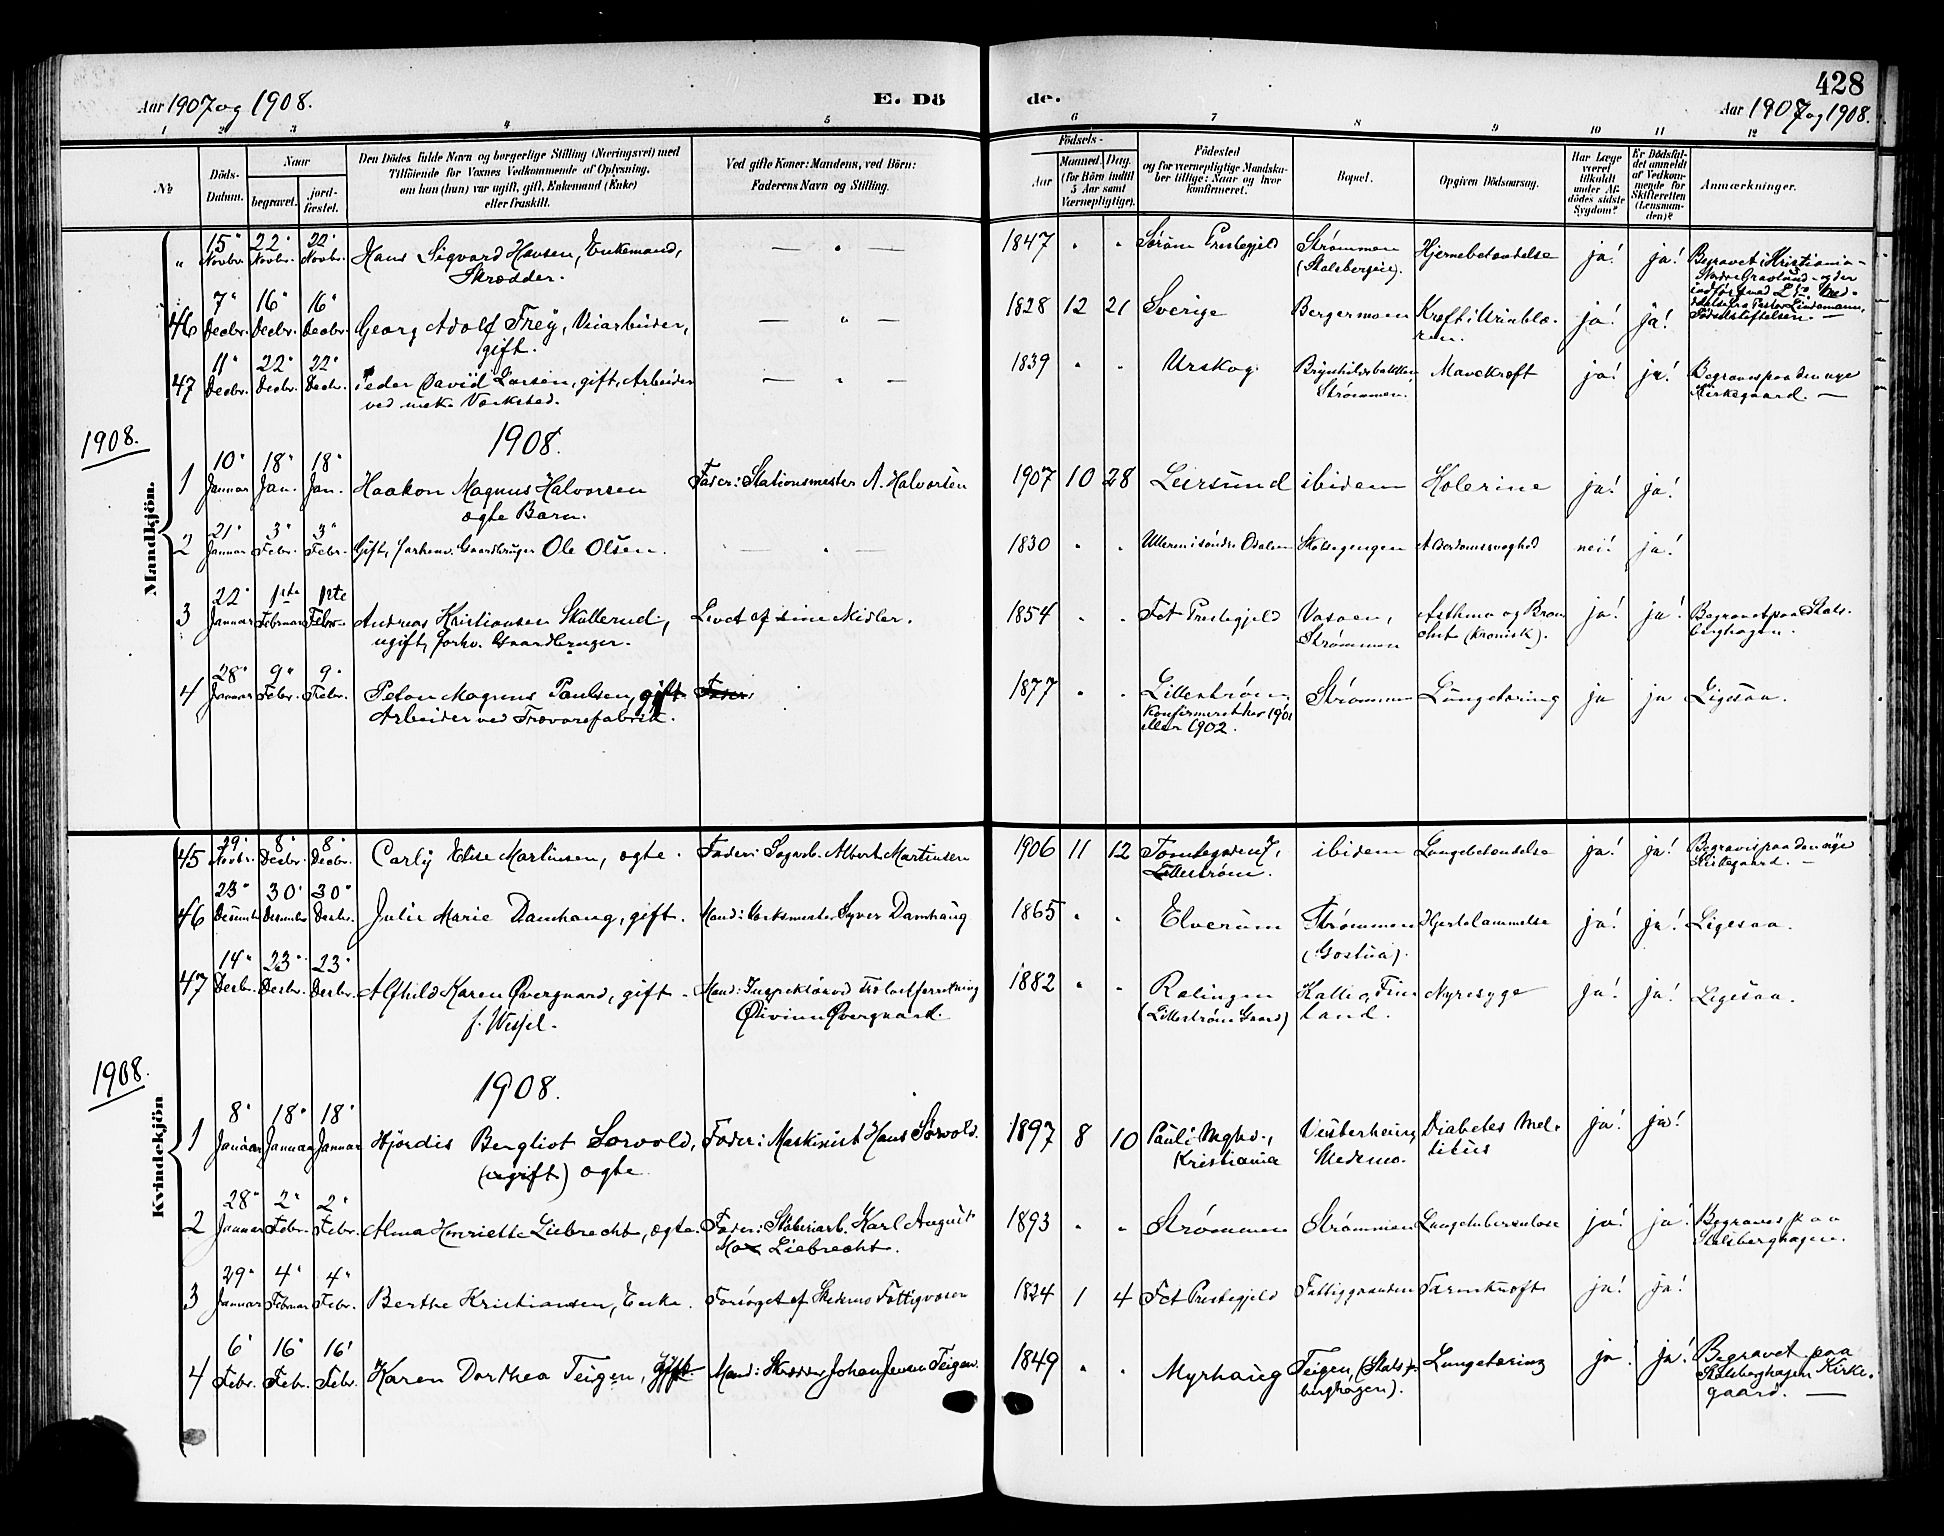 428
Aar 1907 og 1908.
E. Dö
de.
Aar 1907 og 1908.
1 2 3 4 5 6 7 8 9 10 11 12
№
Döds-
Datum.
Naar
begravet.
jord-
fæstet.
Den Dödes fulde Navn og borgerlige Stilling (Næringsvei) med
Tilföiende for Voxnes Vedkommende af Oplysning,
om han (hun) var ugift, gift, Enkemand (Enke)
eller fraskilt.
Ved gifte Koner: Mandens, ved Börn:
Faderens Navn og Stilling.
Födsels-
Aar
Maaned. Dag.
(for Börn indtil
5 Aar samt
Værnepligtige).
Födested
og for værnepligtige Mandska-
ber tillige: Naar og hvor
konfirmeret.
Bopæl.
Opgiven Dödsaarsag.
Har Læge
været
tilkaldt
under Af-
dödes sidste
Sygdom?
Er Dødsfal-
det anmeldt
af Vedkom-
mende for
Skifteretten
(Lensman-
den)?
Anmærkninger.
Mandkjön.
" 15" Novbr. 22" Novbr. 22" Novbr. Hans Sigvard Hansen, Enkemand,
Skrædder.
— " —
1847 " " Sørum Prestegjeld Strømmen
(Stalsbergeie).
Hjernebetændelse ja! ja! Begravet i Kristiania -
Nordre Gravlund - og der
46 7" Decbr. 16" Decbr. 16" Decbr. Georg Adolf Frey, Veiarbeider,
gift.
— " —
1828 12 21 Sverige Bergermoen Kræft i Urinblæ-
ren.
ja! ja!
47 11" Decbr. 22" Decbr. 22" Decbr. Peder David Larsen, gift, Arbeider
ved mek. Værksted.
— " —
1839 " " Urskog Brynhildsbakken
Strømmen.
Mavekræft ja! ja! Begraves paa den nye
Kirkegaard. —
1908.
1908.
1 10" Januar 18" Jan. 18" Jan. Haakon Magnus Halvorsen
ægte Barn.
Fader: Stationsmester A. Halvorsen
1907 10 28 Leirsund ibidem Kolerine ja! ja!
2 21" Januar 3" Febr. 3" Febr. Gift, forhenv. Gaardbruger Ole Olsen.
— " —
1830 " " Ullern i søndre Odalen Skotegengen Alderdomssvaghed nei! ja!
3 22" Januar 1ste Februar 1ste Febr. Andreas Kristiansen Skullerud,
ugift, forhv. Gaardbruger.
Levet af sine Midler.
1854 " " Fet Prestegjeld Vasaen,
Strømmen
Asthma og Bron-
chit (kronisk).
ja! ja! Begravet paa Stals-
berghagen.
4 28" Januar 9" Febr. 9" Febr. Peton Magnus Paulsen, gift
Arbeider ved Trævarefabrik.
Fader:
1877 " " Lillestrøm,
Konfirmeret her 1901
eller 1902.
Strømmen Lungetæring ja ja Ligesaa.
Kvindekjön
45 29" Novbr. 8" Decbr. 8" Decbr. Carly Elise Martinsen, ægte. Fader: Sagarb. Albert Martinsen
1906 11 12 Tomtegaden 7,
Lillestrøm.
ibidem Lungebetændelse ja! ja! Begraves paa den nye
Kirkegaard. —
46 23" Desember 30" Desember 30" Desbr. Julie Marie Damhaug, gift. Mand: Værksmester Syver Damhaug
1865 " " Elverum Strømmen
(Gostua).
Hjertelammelse ja! ja! Ligesaa.
47 14" Desbr. 23" Desbr. 23" Desbr. Alfhild Karen Øvergaard, gift.
f. Wessel.
Mand: Inspektør ved Trælastforretning
Øivind Øvergaard.
1882 " " Rælingen
(Lillestrøm Gaard)
Kallio, Fin-
land.
Nyresyge ja! ja! Ligesaa.
1908.
1908.
1 8" Januar 18" Januar 18" Januar Hjørdis Bergliot Sørvold,
(ugift) ægte.
Fader: Maskinist Hans Sørvold.
1897 8 10 Pauli Mghd.,
Kristiania
Vesterheim,
Skedsmo.
Diabetes Mel-
litus
ja! ja!
2 28" Januar 2" Febr. 2" Febr. Alma Henriette Liebrecht, ægte. Fader: Støberiarb. Karl August
Max Liebrecht.
1893 " " Strømmen Strømmen Lungetuberkulose ja! ja! Begraves paa
Stalsberghagen.
3 29" Januar 4" Februar 4" Febr. Berthe Kristiansen, Enke. Forsørget af Skedsmo Fattigvæsen
1824 1 4 Fet Prestegjeld Fattiggaarden Tarmkræft ja! ja!
4 6" Febr. 16" Febr. 16" Febr. Karen Dorthea Teigen, gift Mand: Skrædder Johan Jensen Teigen.
1849 " " Myrhaug Teigen, (Stals-
berghagen).
Lungetæring ja! ja! Begravet paa
Stalsberghagen Kirke-
gaard. —